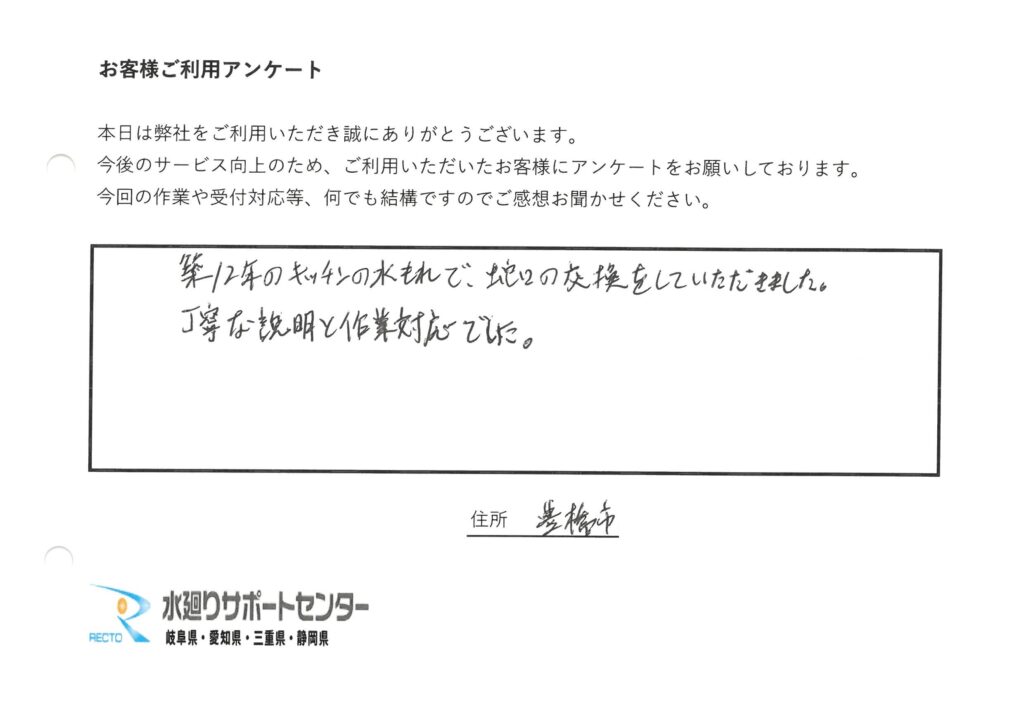 お客様ご利用アンケート
本日は弊社をご利用いただき誠にありがとうございます。
今後のサービス向上のため、ご利用いただいたお客様にアンケートをお願いしております。
今回の作業や受付対応等、何でも結構ですのでご感想お聞かせください。
築12年のキッチンの水もれで、蛇口の交換をしていただきました。
丁寧な説明と作業対応でした。
住所 豊橋市
水廻りサポートセンター
RECTO 岐阜県・愛知県・三重県・静岡県